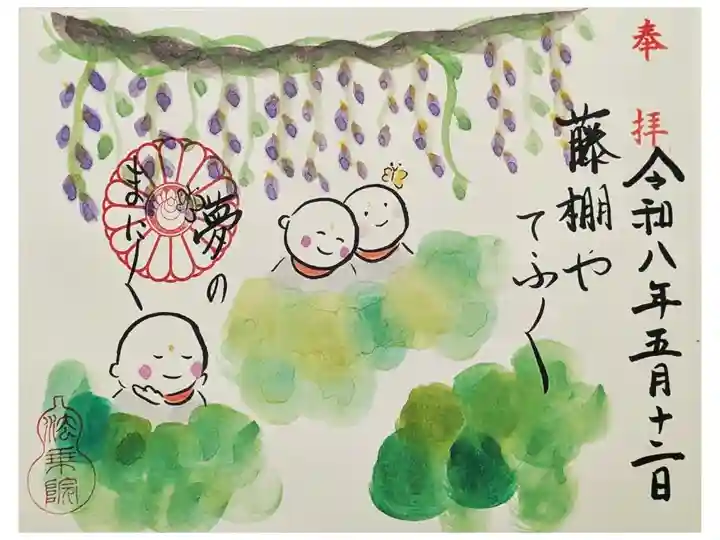 奉拝
令和八年五月十二日
藤棚や
てふ〱
夢の
法乗院